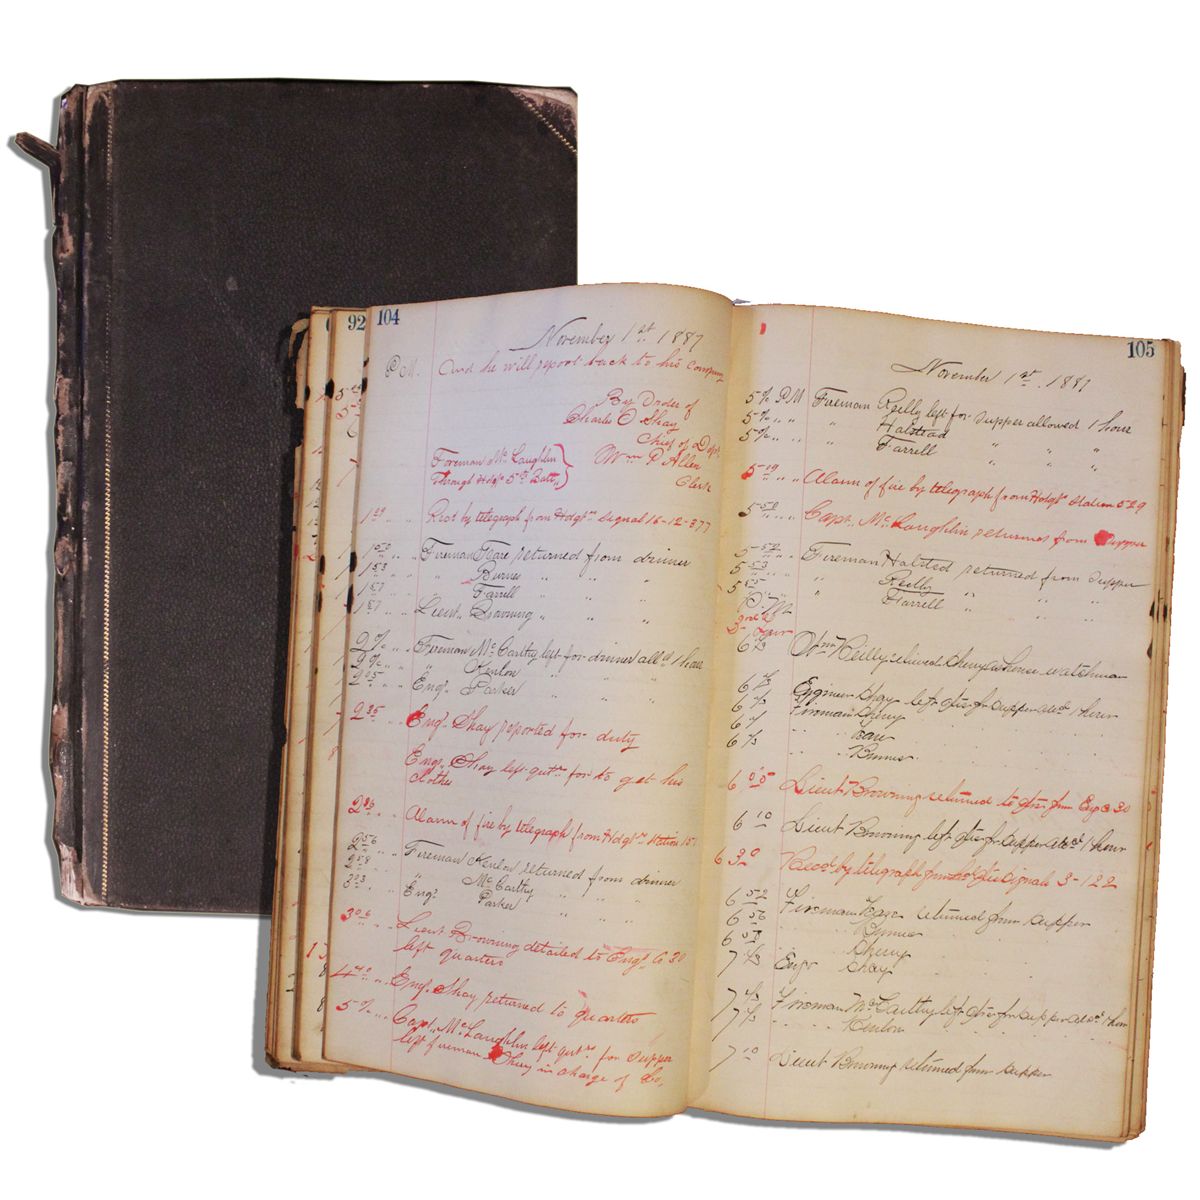 92
104
November 1st 1887
P M. And he will report back to his Company
By Order of
Charles O Shay
Chief of Dept
Wm P. Allen
Clerk
Foreman McLaughlin
Through Hdqrs 5th Batt.
Recd by telegraph from Hdqtrs Signal 16-12-377
1 50 " " Fireman returned from dinner
1 53 " " " Burnes " " "
1 57 " " " Farrell " " "
1 57 " " Lieut. Browning " " "
2 % " " Fireman McCarthy left for dinner alld 1 hour
2 % " " " Kenlon " " "
2 05 " " Engr. Parker " " "
2 35 " " Engr. Shay reported for duty
Engr. Shay left qutrs for to get his
clothes
2 " " Alarm of fire by telegraph from Hdqtrs Station 15
2 56 " " Fireman Kenlon returned from dinner
2 58 " " " McCarthy " " "
" " Engr Parker " " "
3 " " Lieut Browning detailed to Engr Co 30
left quarters
4 " " Engr. Shay returned to quarters
5 % " " Capt. McLaughlin left qutrs for supper
left fireman Cherry in charge of Co.
105
November 1st. 1887
5 % P M Fireman Reilly left for supper allowed 1 hour
5 % " " " Halstead " " "
5 % " " " Farrell " " "
5 09 " " Alarm of fire by telegraph from Hdqtrs Station 529
5 50 " " Capt. McLaughlin returned from supper
5 52 " " Fireman Halsted returned from supper
5 53 " " " Reilly " " "
5 55 " " " Farrell " " "
6 Wm Reilly relieved Cherry as house watchman
6 Engineer Shay left qtrs for supper alod 1 hour
6 Fireman Cherry
6
6 Burnes
6 05 Lieut Browning returned to qtrs from Eng Co 30
6 10 Lieut Browning left qtrs for supper alod 1 hour
6 30 Recd by telegraph from hd qtrs signals 3-122
6 52 Fireman returned from supper
6 56 " " Burnes
6 58 " " Cherry
7 Engr Shay
7 Fireman McCarthy left qtrs for supper alod 1 hour
7 " " Kenlon
7 10 Lieut Browning returned from supper